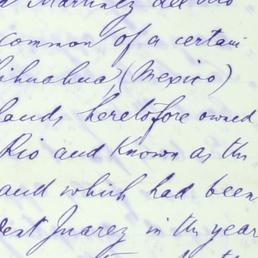 Martinez del Rio
common of a certain
Chihuahua, (Mexico)
lands heretofore owned
Rio and Known as the
and which had been
dent Juarez in the year